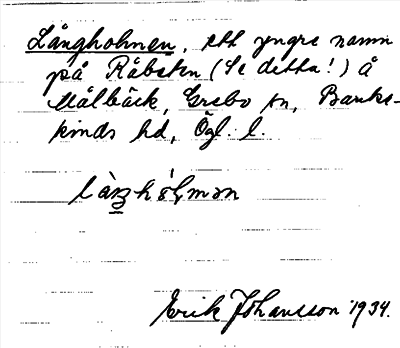 Långholmen, ett yngre namn
på Råbeten (Se detta!) å
Målbäck, Grebo sn, Banke-
kinds hd, Ögl. l.
Erik Johansson 1934.